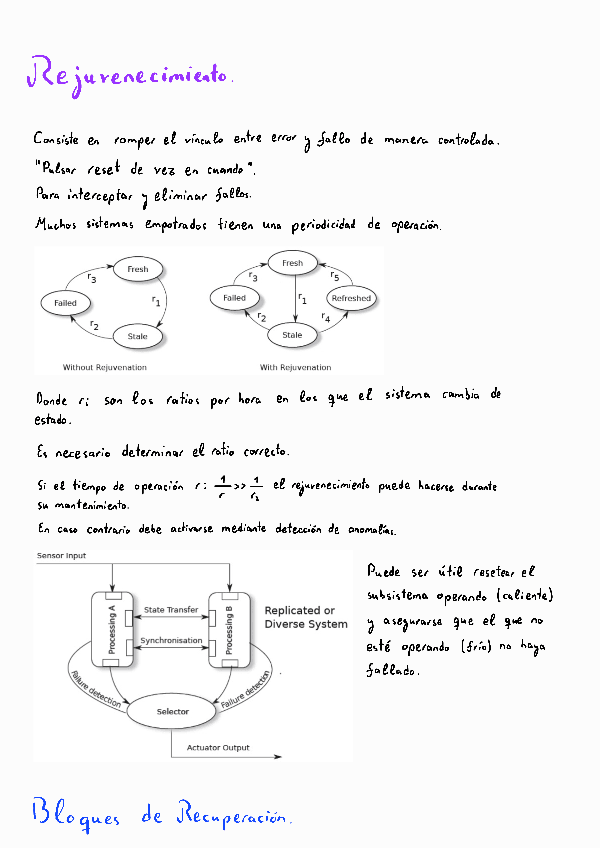 Rejuvenecimiento.
Consiste en romper el vínculo entre error y fallo de manera controlada.
"Pulsar reset de vez en cuando".
Para interceptar y eliminar fallos.
Muchos sistemas empotrados tienen una periodicidad de operación.
Fresh
r3
r1
Failed
r2
Stale
Without Rejuvenation
Fresh
r3
r5
Failed
r1
Refreshed
r2
r4
Stale
With Rejuvenation
Donde ri son los ratios por hora en los que el sistema cambia de
estado.
Es necesario determinar el ratio correcto.
Si el tiempo de operación r: 1/r >> 1/r2 el rejuvenecimiento puede hacerse durante
su mantenimiento.
En caso contrario debe activarse mediante detección de anomalías.
Sensor Input
Processing A
State Transfer
Synchronisation
Processing B
Replicated or
Diverse System
Failure detection
Failure detection
Selector
Actuator Output
Puede ser útil resetear el
subsistema operando (caliente)
y asegurarse que el que no
esté operando (frío) no haya
fallado.
Bloques de Recuperación.